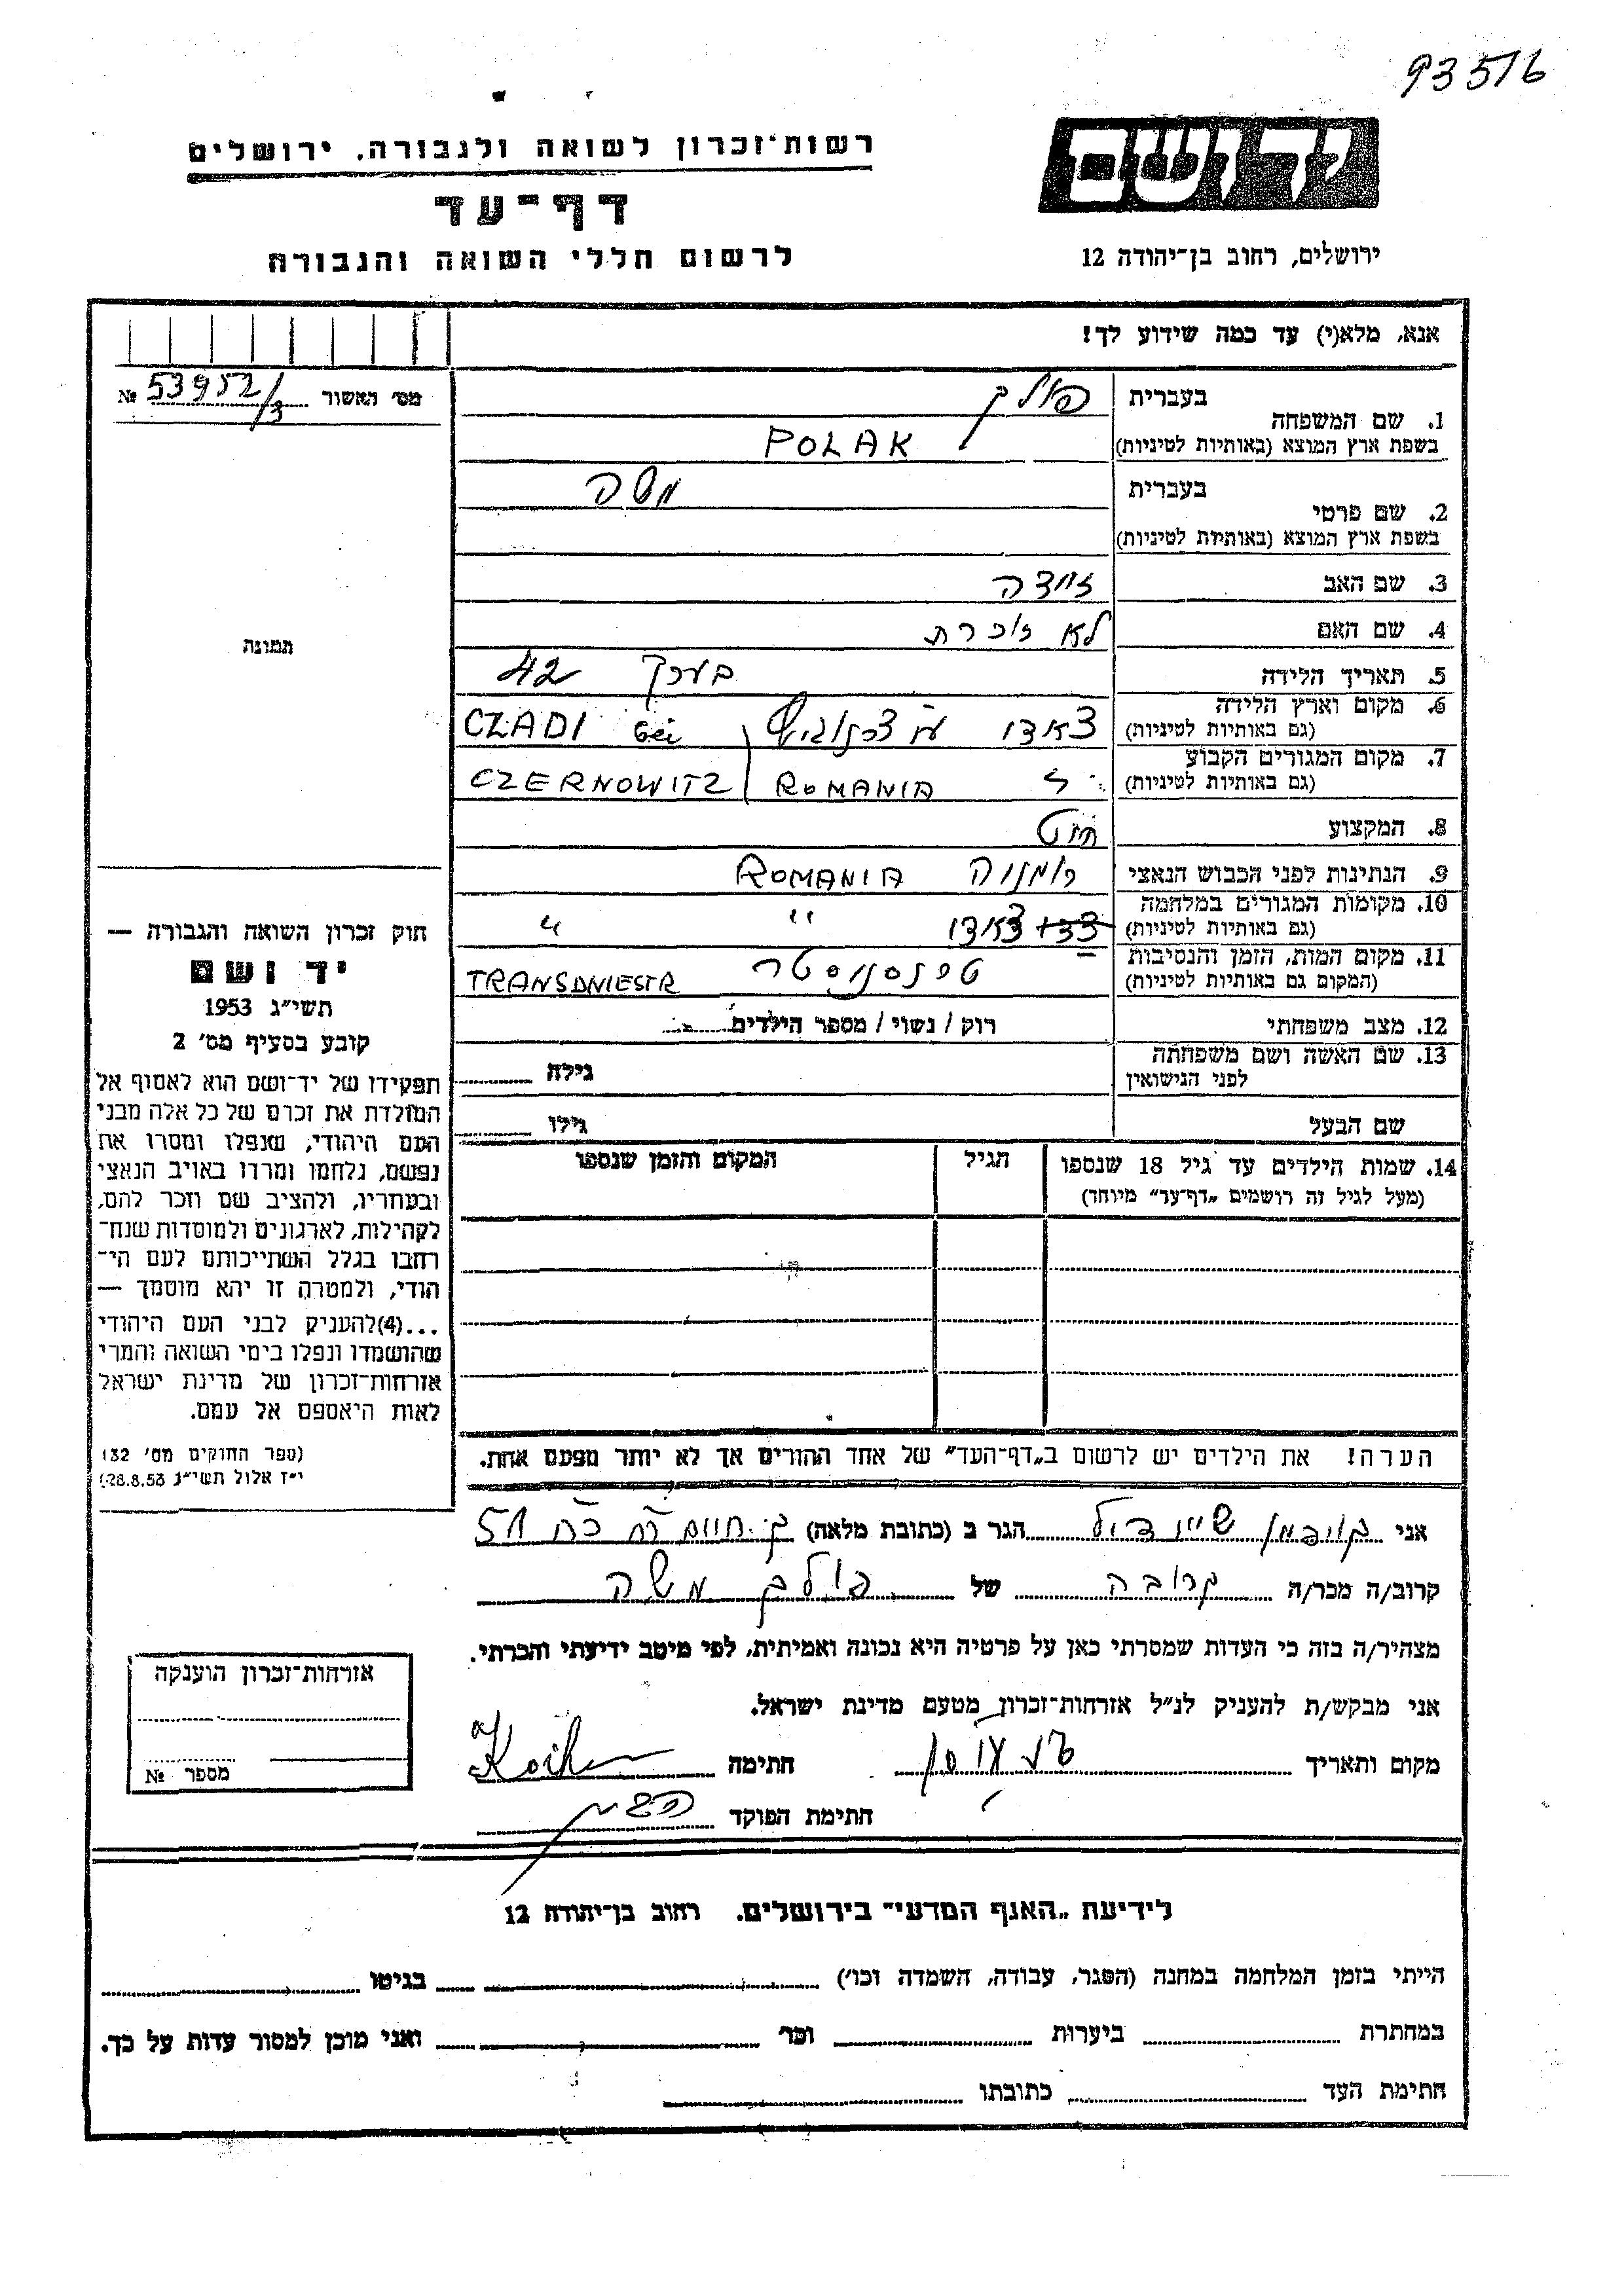 93516
יד ושם
ירושלים, רחוב בן־יהודה 12
רשות־זכרון לשואה ולגבורה, ירושלים
דף־עד
לרשום חללי השואה והגבורה
אנא, מלא(י) עד כמה שידוע לך!
מס׳ האשור 53952/3 №
תמונה
1. שם המשפחה
בעברית פולק
בשפת ארץ המוצא (באותיות לטיניות) POLAK
2. שם פרטי
בעברית משה
בשפת ארץ המוצא (באותיות לטיניות)
3. שם האב זיידה
4. שם האם לא זוכרת
5. תאריך הלידה בערך 42
6. מקום וארץ הלידה צאדי CZADI bei
(גם באותיות לטיניות)
7. מקום המגורים הקבוע CZERNOWITZ ROMANIA
(גם באותיות לטיניות)
8. המקצוע חיט
9. הנתינות לפני הכבוש הנאצי רומניה ROMANIA
10. מקומות המגורים במלחמה צאדי " "
(גם באותיות לטיניות)
11. מקום המות, הזמן והנסיבות TRANSDNIESTR
(המקום גם באותיות לטיניות)
12. מצב משפחתי רוק / נשוי / מספר הילדים
13. שם האשה ושם משפחתה לפני הנישואין גילה
שם הבעל גילו
14. שמות הילדים עד גיל 18 שנספו הגיל המקום והזמן שנספו
(מעל לגיל זה רושמים „דף־עד״ מיוחד)
הערה! את הילדים יש לרשום ב„דף־העד״ של אחד ההורים אך לא יותר מפעם אחת.
חוק זכרון השואה והגבורה —
יד ושם
תשי״ג 1953
קובע בסעיף מס׳ 2
תפקידו של יד־ושם הוא לאסוף אל
המולדת את זכרם של כל אלה מבני
העם היהודי, שנפלו ומסרו את
נפשם, נלחמו ומרדו באויב הנאצי
ובעחריו, ולהציב שם וזכר להם,
לקהילות, לארגונים ולמוסדות שנח־
רחבו בגלל השתייכותם לעם הי־
הודי, ולמטרה זו יהא מוסמך —
...(4)להעניק לבני העם היהודי
שהושמדו ונפלו בימי השואה והמרי
אזרחות־זכרון של מדינת ישראל
לאות היאספם אל עמם.
(ספר החוקים מס׳ 132
י״ז אלול תשי״ג 28.8.53)
אני הגר ב (כתובת מלאה) 51
קרוב/ה מכר/ה קרובה של פולק משה
מצהיר/ה בזה כי העדות שמסרתי כאן על פרטיה היא נכונה ואמיתית, לפי מיטב ידיעתי והכרתי.
אני מבקש/ת להעניק לנ״ל אזרחות־זכרון מטעם מדינת ישראל.
מקום ותאריך חתימה
חתימת הפוקד
אזרחות־זכרון הוענקה
מספר №
לידיעת „האגף המדעי״ בירושלים. רחוב בן־יהודה 12
הייתי בזמן המלחמה במחנה (הסגר, עבודה, השמדה וכו׳) בגיטו
במחתרת ביערות וכו׳ ואני מוכן למסור עדות על כך.
חתימת העד כתובתו